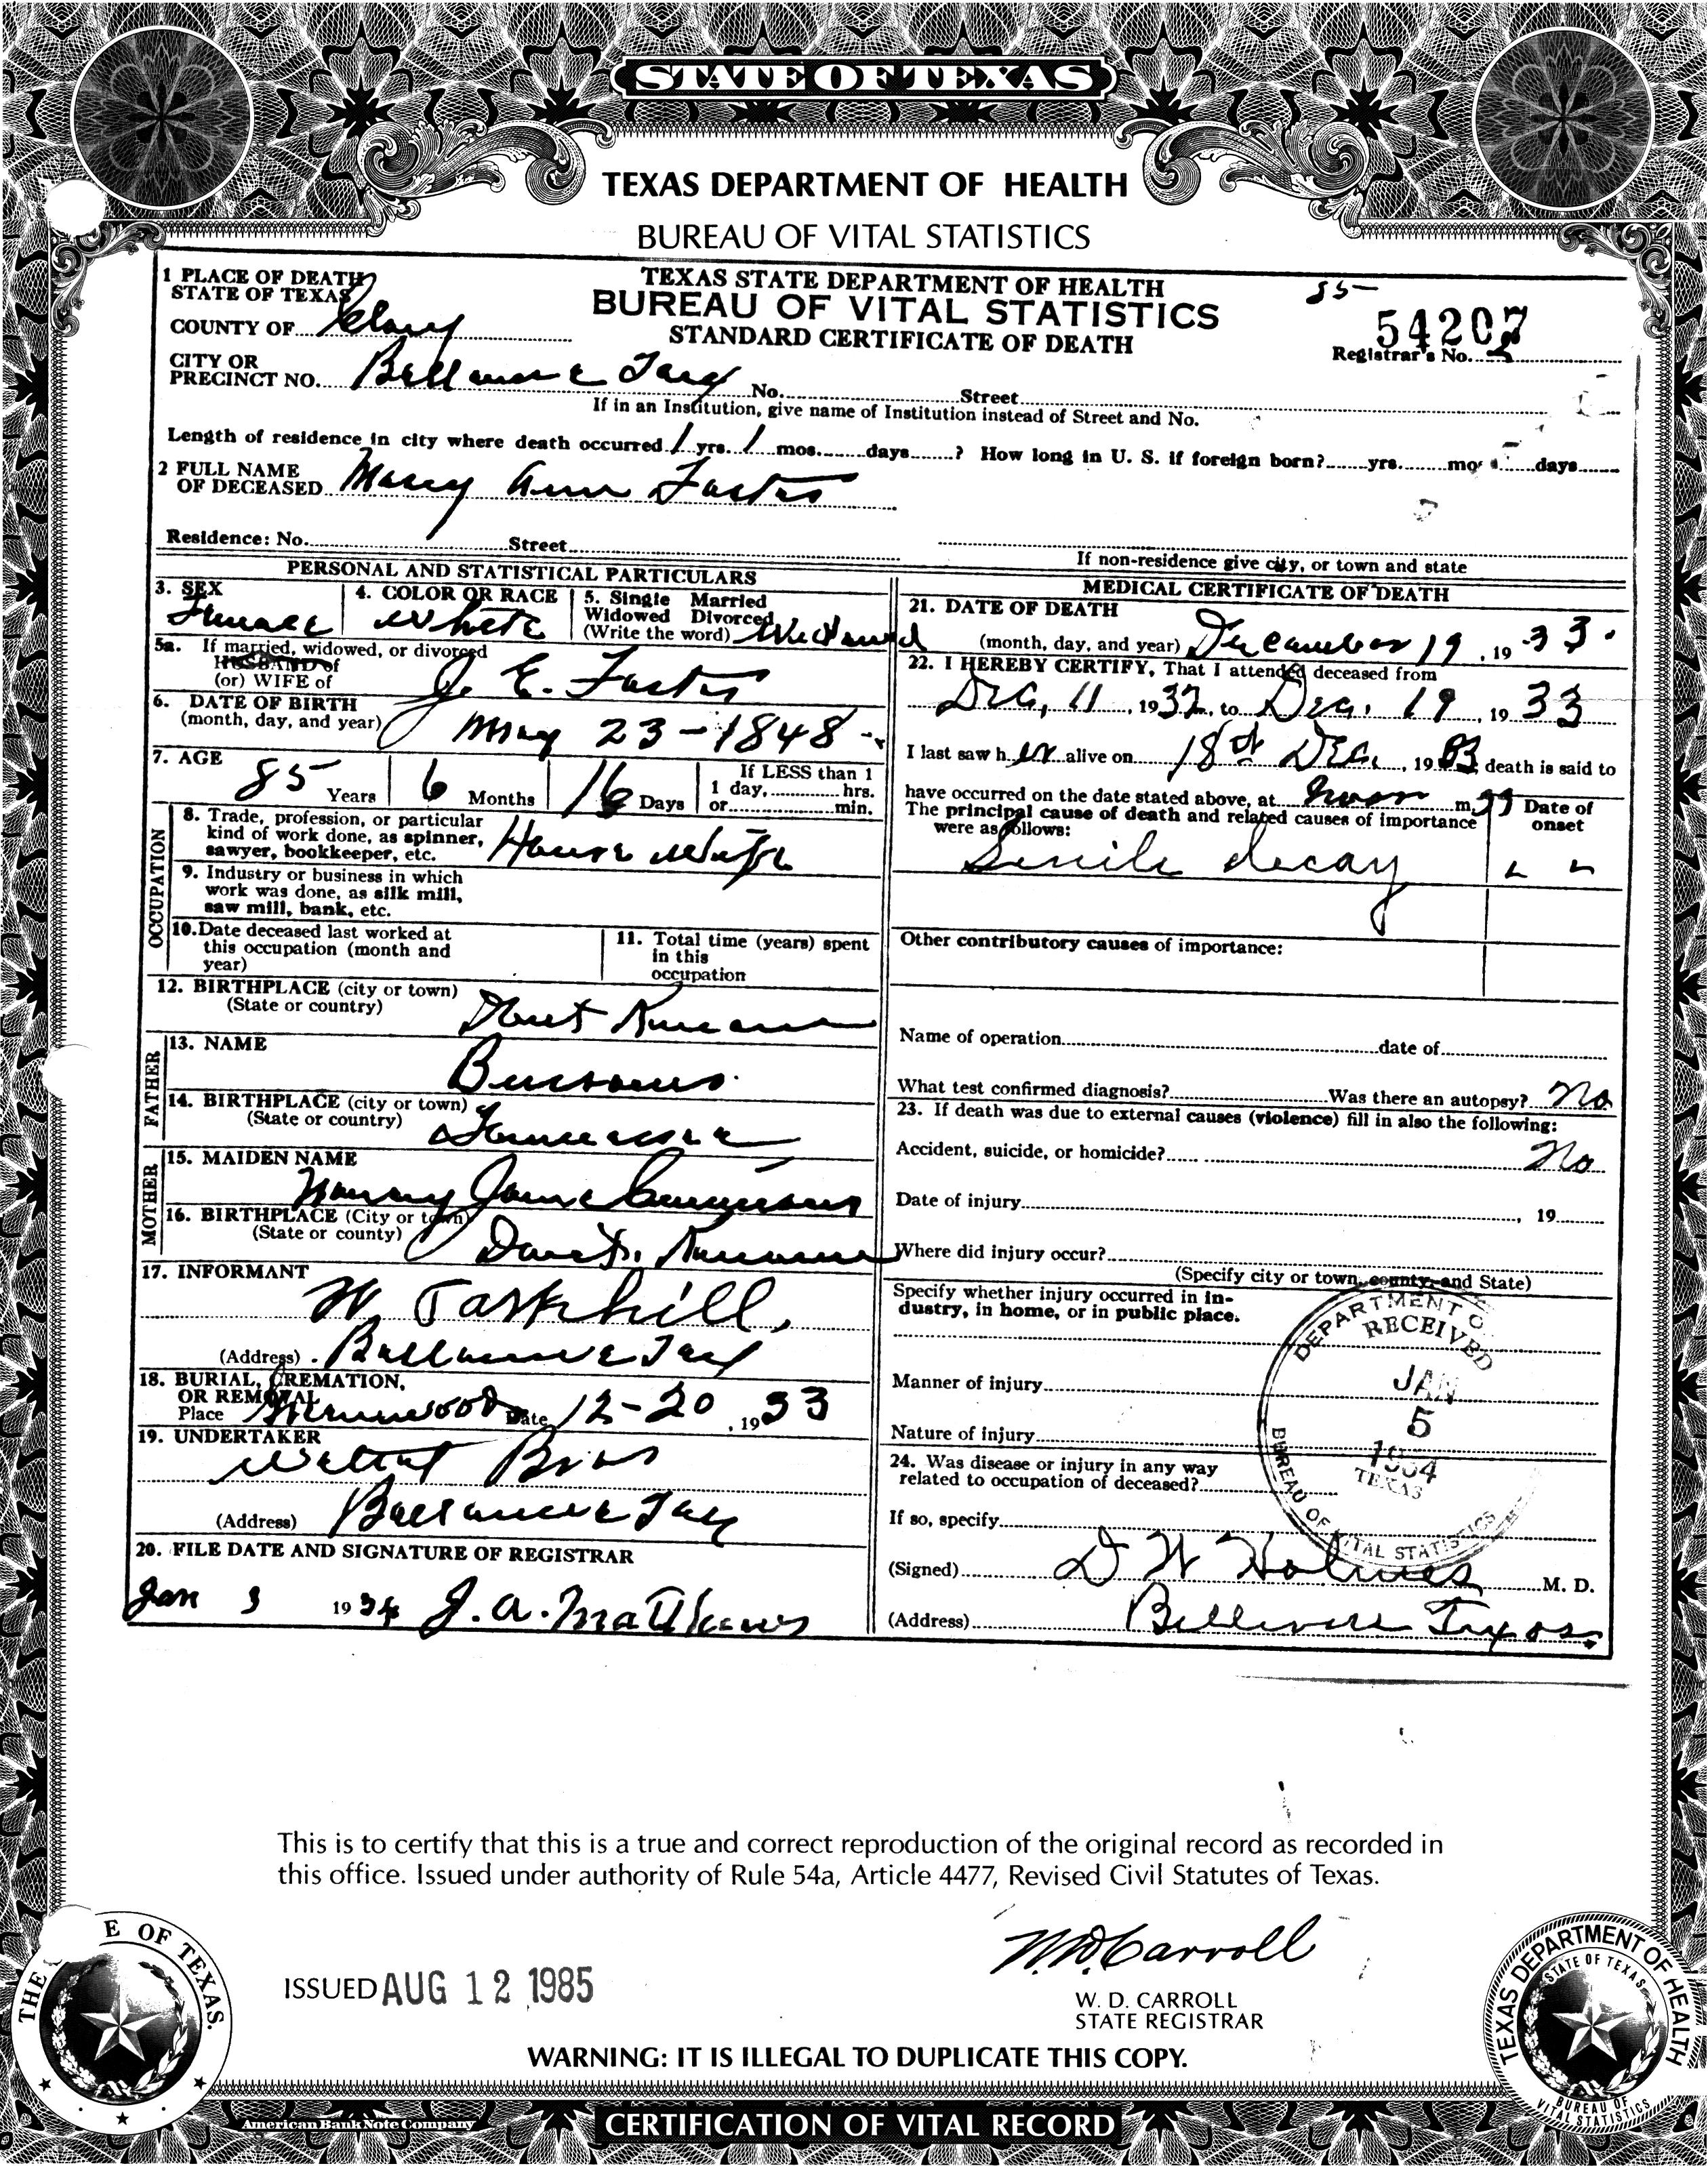 STATE OF TEXAS
TEXAS DEPARTMENT OF HEALTH
BUREAU OF VITAL STATISTICS
1 PLACE OF DEATH
STATE OF TEXAS
COUNTY OF Clay
CITY OR
PRECINCT NO.
TEXAS STATE DEPARTMENT OF HEALTH
BUREAU OF VITAL STATISTICS
STANDARD CERTIFICATE OF DEATH
85
54207
Registrar's No. 2
No. Street
If in an Institution, give name of Institution instead of Street and No.
Length of residence in city where death occurred 1 yrs. 1 mos. days ? How long in U. S. if foreign born? yrs. mos. days
2 FULL NAME
OF DECEASED Mary Ann Foster
Residence: No. Street
If non-residence give city, or town and state
PERSONAL AND STATISTICAL PARTICULARS
3. SEX
Female
4. COLOR OR RACE
White
5. Single Married
Widowed Divorced
(Write the word) Widowed
5a. If married, widowed, or divorced
HUSBAND of
(or) WIFE of J. E. Foster
6. DATE OF BIRTH
(month, day, and year) May 23-1848
7. AGE
85 Years 6 Months 16 Days
If LESS than 1
1 day, hrs.
or min.
OCCUPATION
8. Trade, profession, or particular
kind of work done, as spinner,
sawyer, bookkeeper, etc. House Wife
9. Industry or business in which
work was done, as silk mill,
saw mill, bank, etc.
10. Date deceased last worked at
this occupation (month and
year)
11. Total time (years) spent
in this
occupation
12. BIRTHPLACE (city or town)
(State or country) Don't Know
FATHER
13. NAME
14. BIRTHPLACE (city or town)
(State or country) Tennessee
MOTHER
15. MAIDEN NAME
Nancy Jane
16. BIRTHPLACE (City or town)
(State or county) Don't
17. INFORMANT
W. Taskhill,
(Address)
18. BURIAL, CREMATION,
OR REMOVAL
Place Date 12-20, 1933
19. UNDERTAKER
Bros
(Address)
20. FILE DATE AND SIGNATURE OF REGISTRAR
Jan 3 1934 J. A. Matthews
MEDICAL CERTIFICATE OF DEATH
21. DATE OF DEATH
(month, day, and year) December 19, 1933.
22. I HEREBY CERTIFY, That I attended deceased from
Dec, 11, 1932, to Dec. 19, 1933
I last saw her alive on 18th Dec., 1933, death is said to
have occurred on the date stated above, at Noon m.
The principal cause of death and related causes of importance
were as follows:
Date of
onset
Senile decay
Other contributory causes of importance:
Name of operation date of
What test confirmed diagnosis? Was there an autopsy? No
23. If death was due to external causes (violence) fill in also the following:
Accident, suicide, or homicide? No
Date of injury , 19
Where did injury occur?
(Specify city or town, county, and State)
Specify whether injury occurred in in-
dustry, in home, or in public place.
Manner of injury
Nature of injury
24. Was disease or injury in any way
related to occupation of deceased?
If so, specify
(Signed) D W Holmes M. D.
(Address) Bellevue Texas.
DEPARTMENT O
RECEIVED
JAN
5
1934
TEXAS
BUREAU OF VITAL STATISTICS
This is to certify that this is a true and correct reproduction of the original record as recorded in
this office. Issued under authority of Rule 54a, Article 4477, Revised Civil Statutes of Texas.
W.D. Carroll
ISSUED AUG 12 1985
W. D. CARROLL
STATE REGISTRAR
WARNING: IT IS ILLEGAL TO DUPLICATE THIS COPY.
THE E OF TEXAS.
TEXAS DEPARTMENT OF HEALTH
STATE OF TEXAS
BUREAU OF
VITAL STATISTICS
American Bank Note Company
CERTIFICATION OF VITAL RECORD